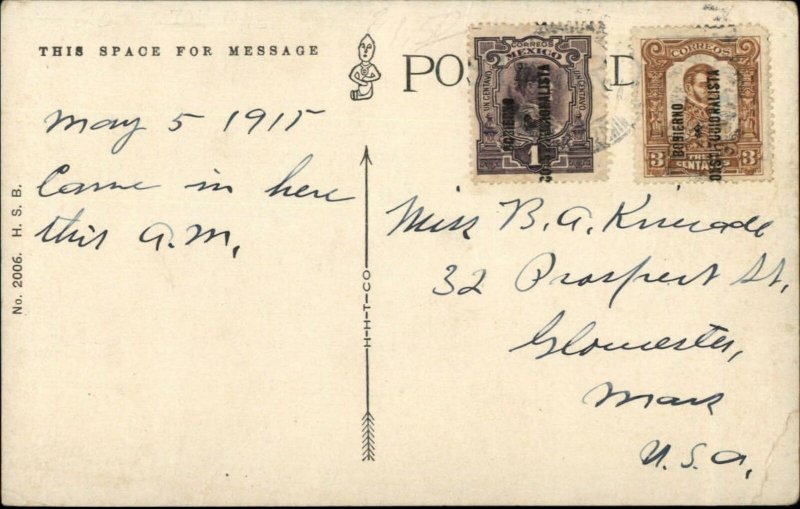 THIS SPACE FOR MESSAGE
May 5 1915
Came in here
this A.M.
No. 2006. H. S. B.
H-H-T-CO
CORREOS
MEXICO
UN CENTAVO
UN CENTAVO
1
GOBIERNO
CONSTITUCIONALISTA
CORREOS
3
3
GOBIERNO
CONSTITUCIONALISTA
Miss B. A.
32 Prospect St,
Gloucester,
Mass
U.S.A,